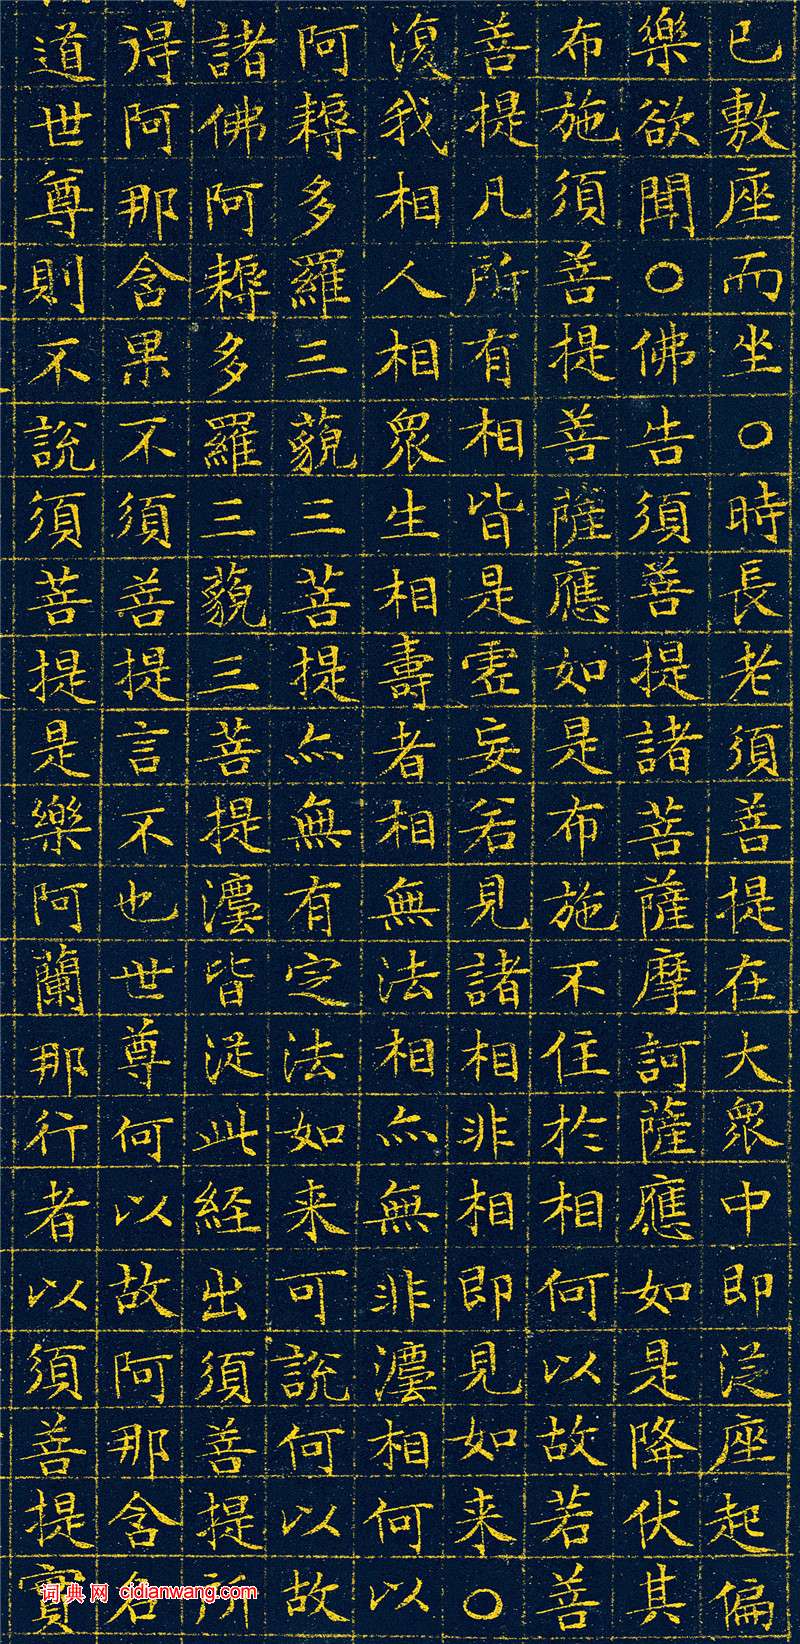 已敷座而坐○時長老須善提在大衆中即從座起偏
樂欲聞○佛告須善提諸菩薩摩訶薩應如是降伏其
布施須善提善薩應如是布施不住於相何以故若善
善提凡所有相皆是虛妄若見諸相非相即見如来○
復我相人相衆生相壽者相無法相亦無非灋相何以
阿耨多羅三藐三菩提亦無有定法如来可說何以故
諸佛阿耨多羅三藐三菩提灋皆從此経出須善提所
得阿那含果不須善提言不也世尊何以故阿那含名
道世尊則不說須菩提是樂阿蘭那行者以須善提實
词典网 cidianwang.com